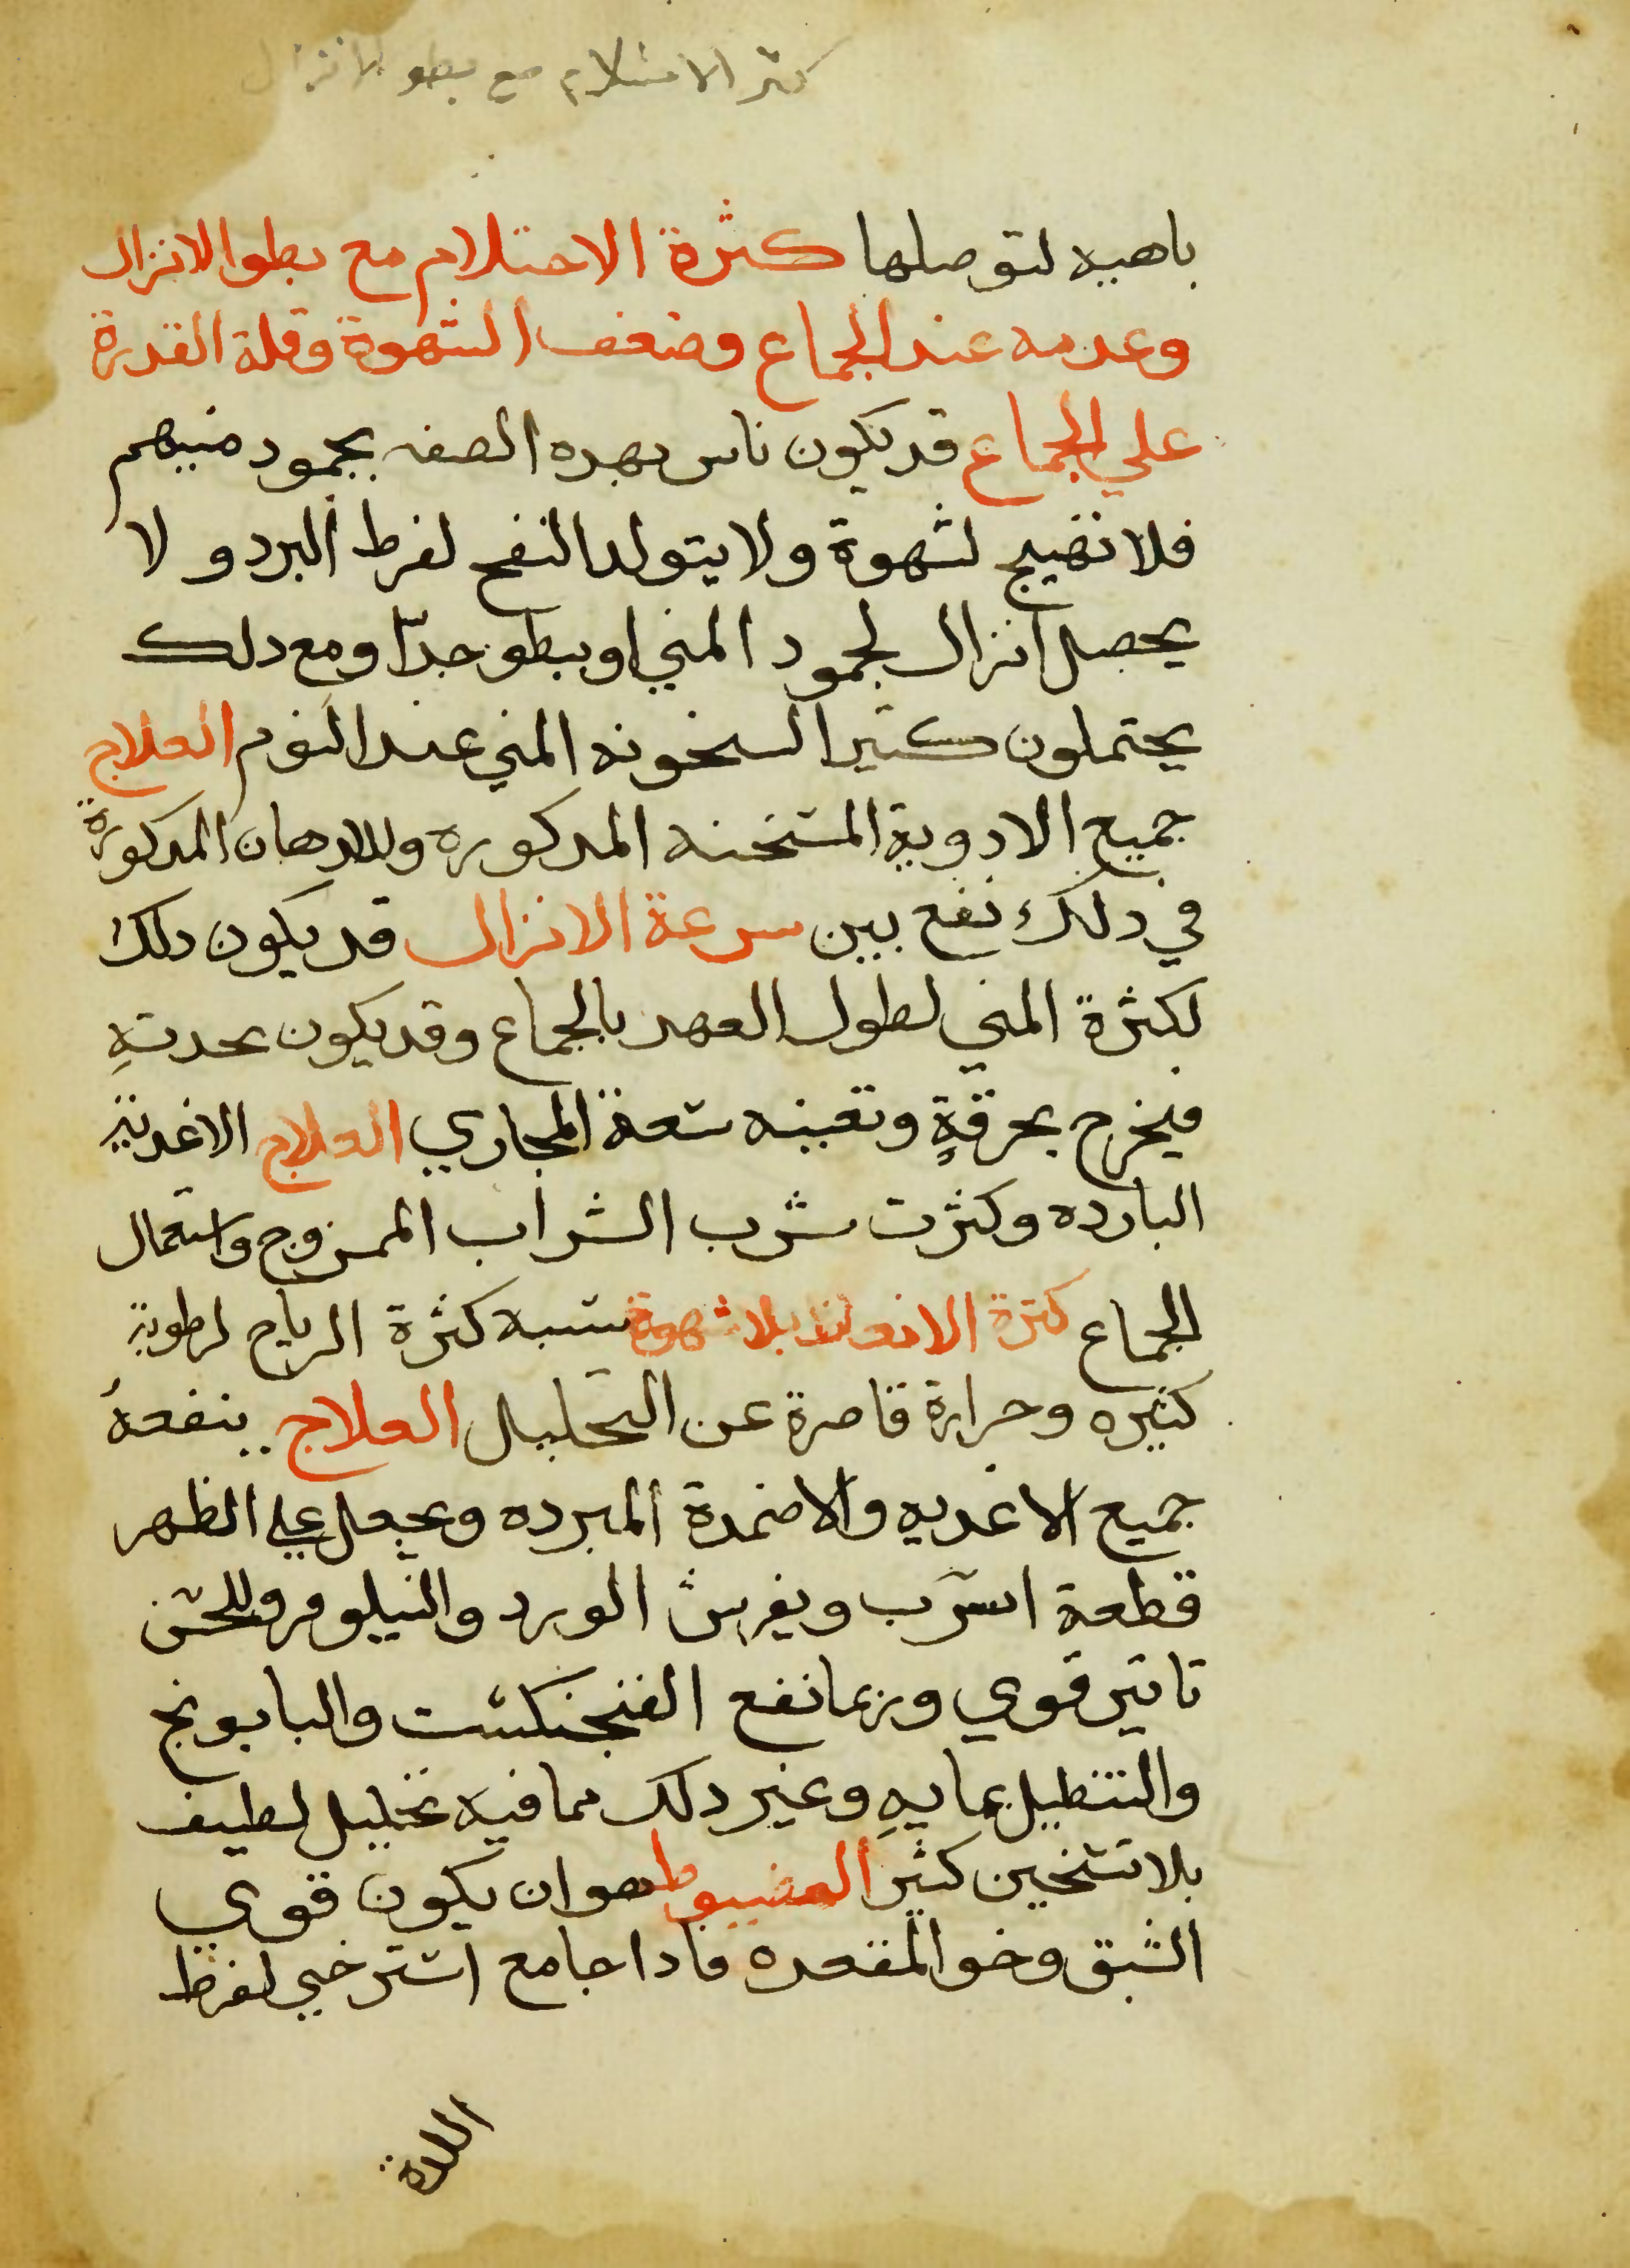 كثر الاحتلام مع بطو الانزال
باهيه لتوصلها كثرة الاحتلام مع بطو الانزال
وعدمه عند الجماع وضعف الشهوة وقلة القدرة
علي الجماع قد يكون ناس بهده الصفه بجمود منيهم
فلا تهيج لشهوة ولا يتولد النفح لفرط البرد و لا
يحصل انزال لجمود المني او يبطو جدّا ومع دلك
يحتملون كثيرا لسخونه المني عند النوم العلاج
جميع الادوية المسخنه المدكوره وللادهان المدكورة
في دلك نفع بين سرعة الانزال قد يكون دلك
لكثرة المني لطول العهد بالجماع وقد يكون بحدتهِ
فيخرج بحرقةٍ وتعينه سعة المجاري العلاج الاغدية
البارده وكثرت شرب الشراب الممزوج واستعمال
الجماع كثرة الانعاظ بلا شهوة سببه كثرة الرياح لرطوبة
كثيره وحرارة قاصرة عن التحليل العلاج ينفعهُ
جميع الاغديه والاضمدة المبرده ويجعل علي الظهر
قطعة اسرب ويفرش الورد والنيلوفر وللخس
تاتير قوي وربما نفع الفنجنكشت والبابونج
والتنطيل بمايهِ وغير دلك مما فيه تحليل لطيف
بلا تسخين كثير العضيوط هو ان يكون قوي
الشبق رخو المقعده فادا جامع استرخي لفرط
اللدة